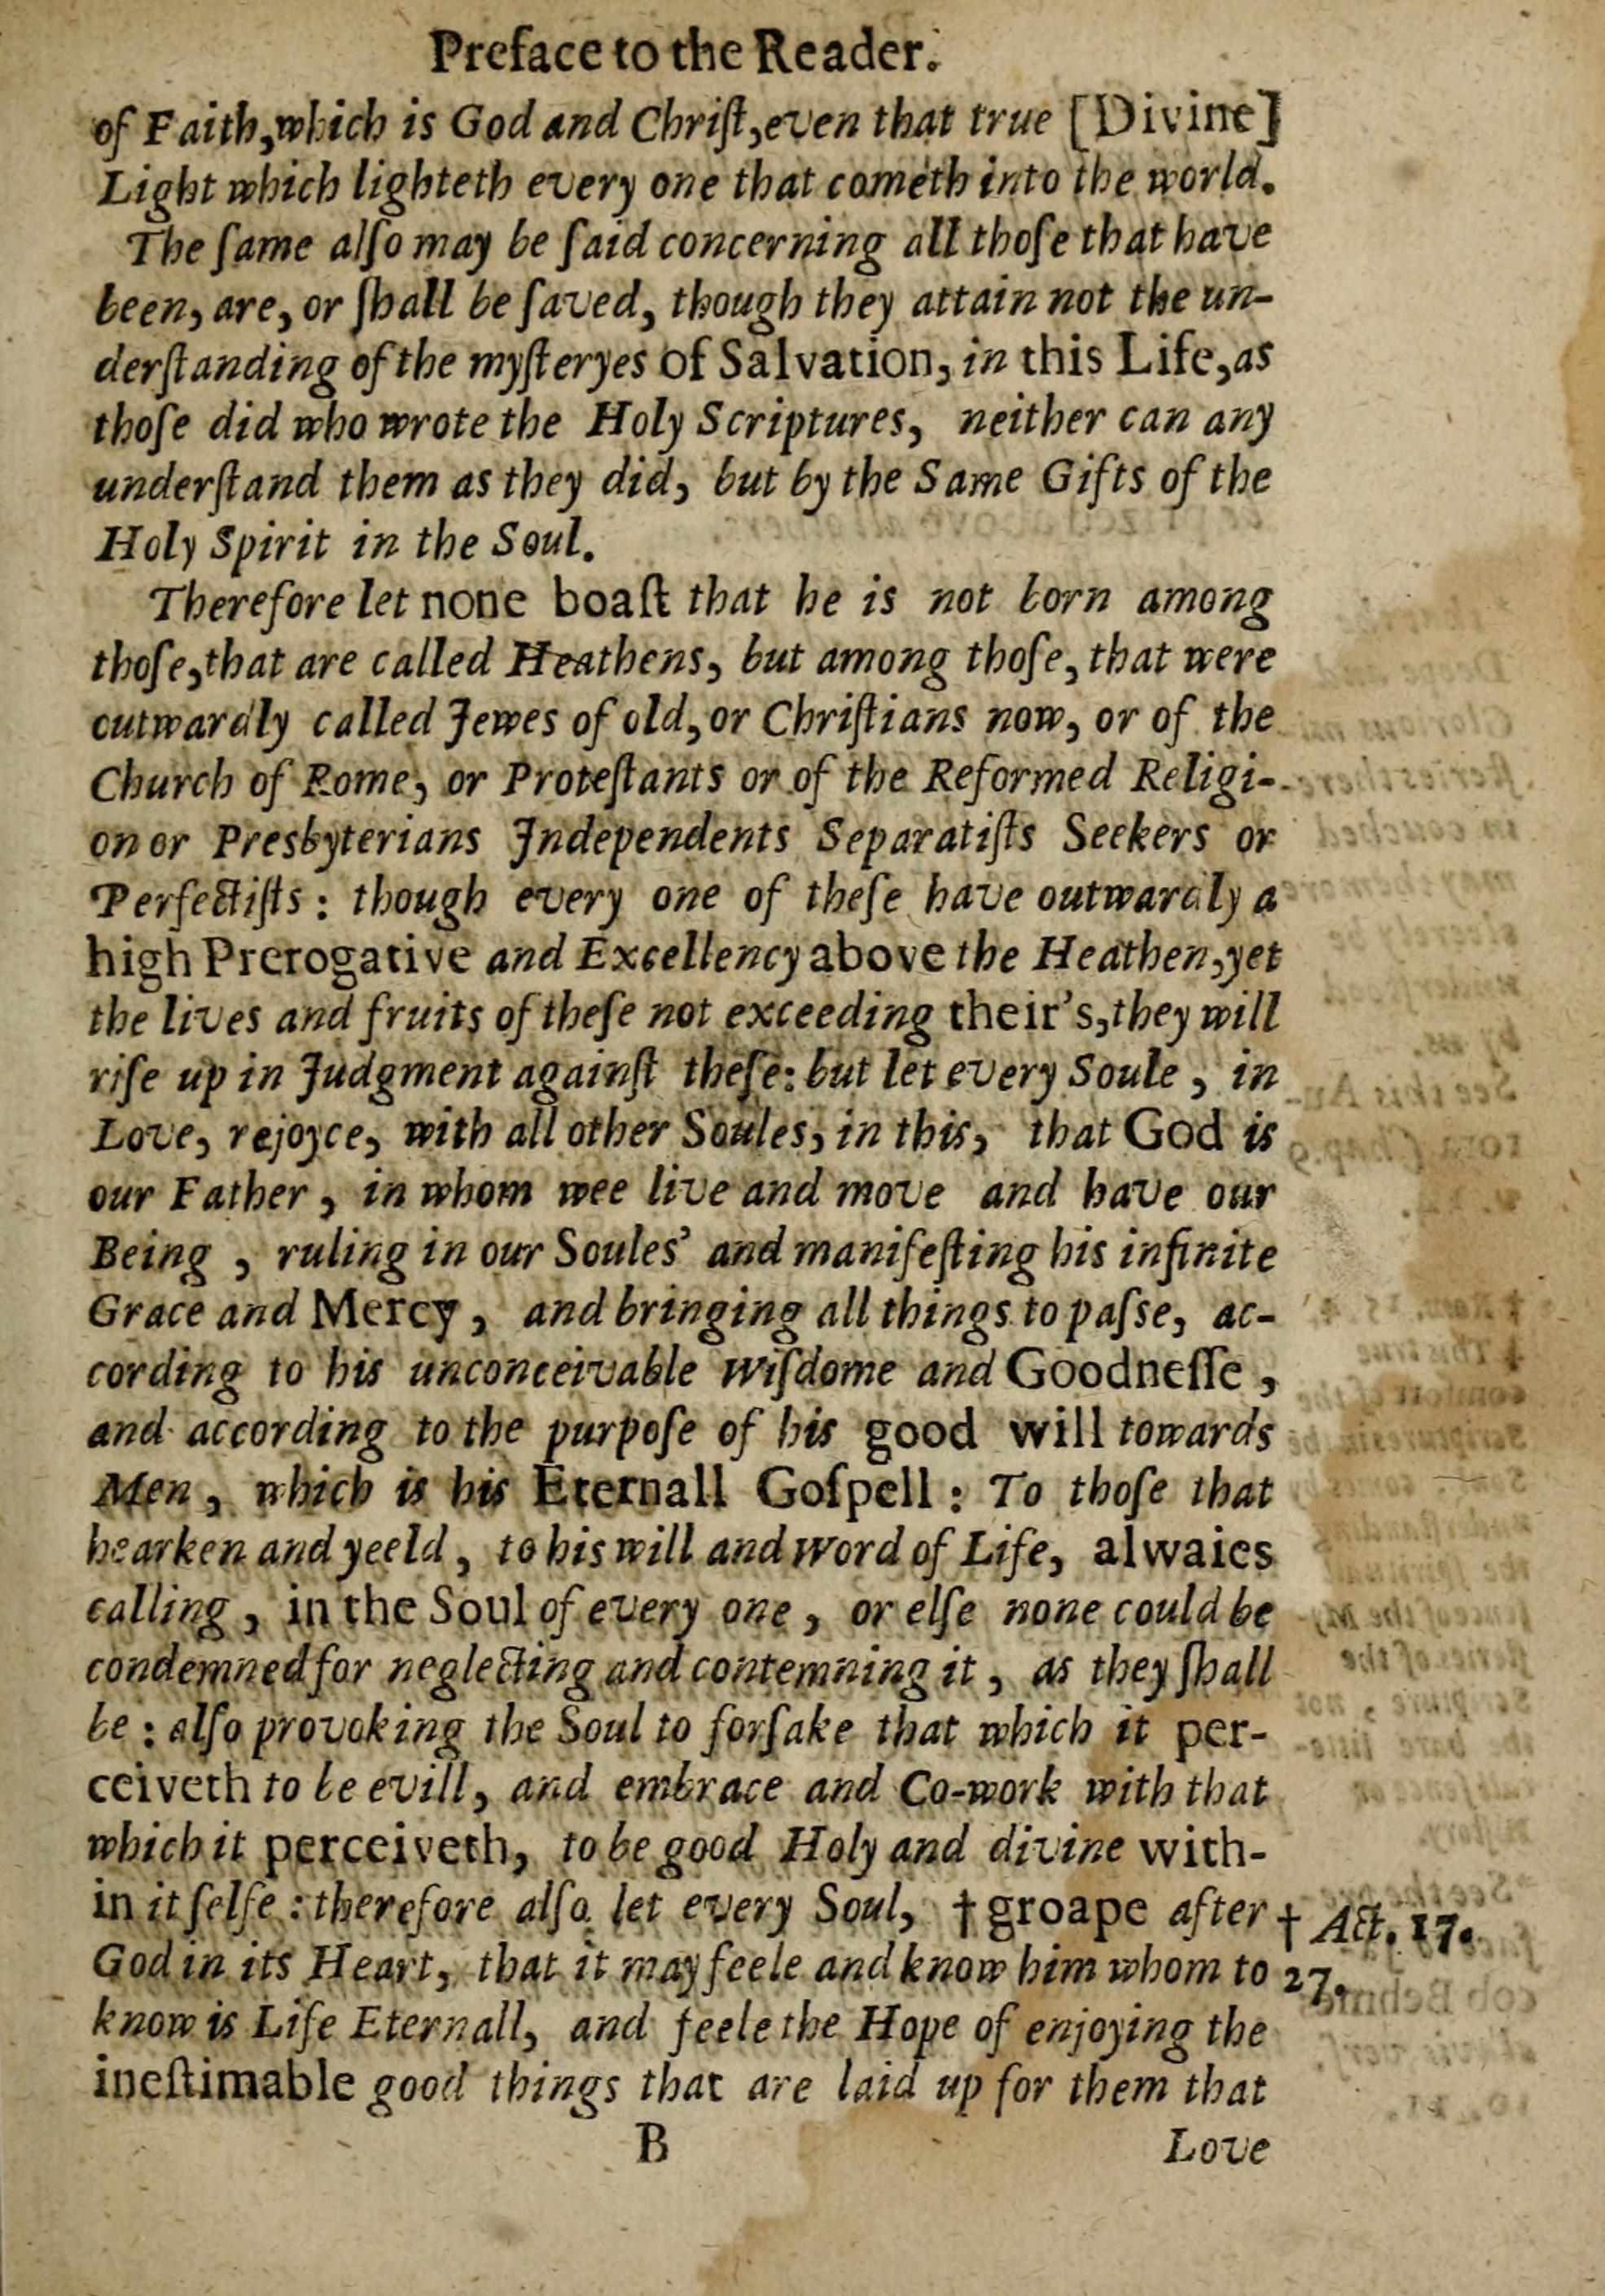 Preface to the Reader.
of Faith, which is God and Chriſt, even that true [Divine]
Light which lighteth every one that cometh into the world.
The ſame alſo may be ſaid concerning all thoſe that have
been, are, or ſhall be ſaved, though they attain not the un-
derſtanding of the myſteryes of Salvation, in this Life, as
thoſe did who wrote the Holy Scriptures, neither can any
underſtand them as they did, but by the Same Gifts of the
Holy Spirit in the Soul.
Therefore let none boaſt that he is not born among
thoſe, that are called Heathens, but among thoſe, that were
outwardly called Jewes of old, or Chriſtians now, or of the
Church of Rome, or Proteſtants or of the Reformed Religi-
on or Presbyterians Independents Separatiſts Seekers or
Perfectiſts: though every one of theſe have outwardly a
high Prerogative and Excellency above the Heathen, yet
the lives and fruits of theſe not exceeding their's, they will
riſe up in Judgment againſt theſe: but let every Soule, in
Love, rejoyce, with all other Soules, in this, that God is
our Father, in whom wee live and move and have our
Being, ruling in our Soules' and manifeſting his infinite
Grace and Mercy, and bringing all things to paſse, ac-
cording to his unconceivable Wiſdome and Goodneſſe,
and according to the purpoſe of his good will towards
Men, which is his Eternall Goſpell: To thoſe that
hearken and yeeld, to his will and Word of Life, alwaies
calling, in the Soul of every one, or elſe none could be
condemned for neglecting and contemning it, as they ſhall
be: alſo provoking the Soul to forſake that which it per-
ceiveth to be evill, and embrace and Co-work with that
which it perceiveth, to be good Holy and divine with-
in it ſelfe: therefore alſo let every Soul, † groape after
† Act. 17.
God in its Heart, that it may feele and know him whom to
27.
know is Life Eternall, and feele the Hope of enjoying the
ineſtimable good things that are laid up for them that
B
Love